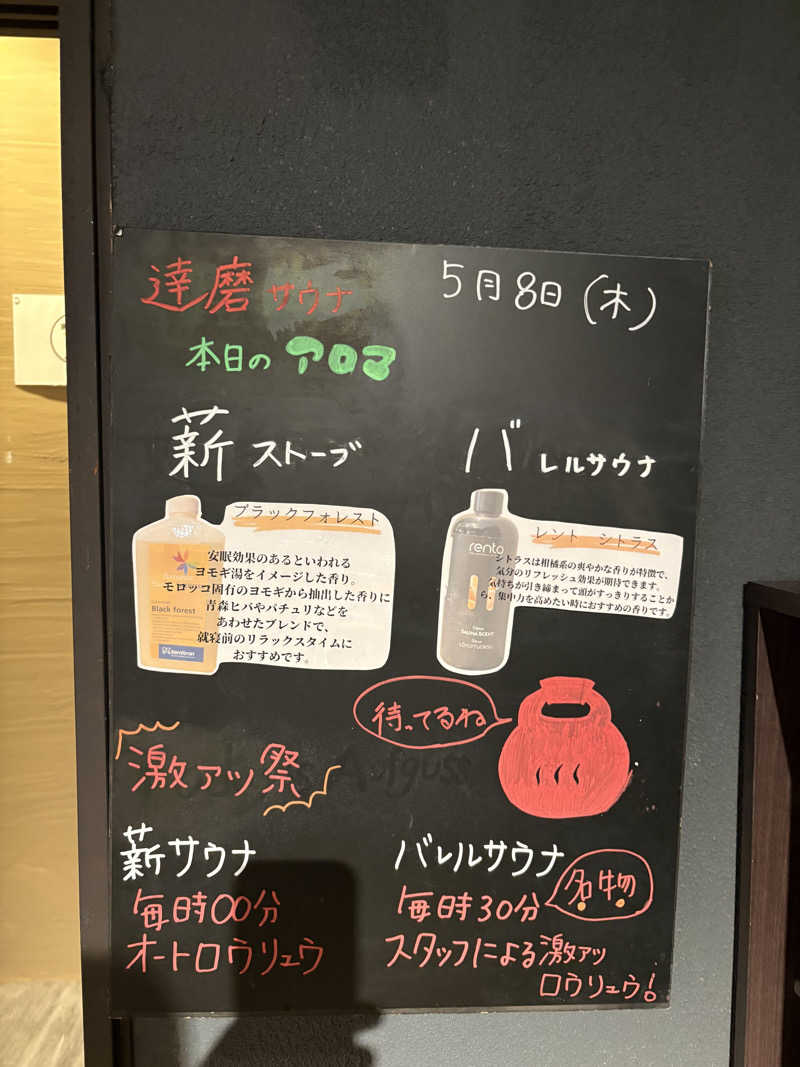 達磨サウナ 5月8日(木)
本日のアロマ
薪ストーブ
Black forest
ブラックフォレスト
安眠効果のあるといわれる
ヨモギ湯をイメージした香り。
モロッコ固有のヨモギから抽出した香りに
青森ヒバやパチュリなどを
あわせたブレンドで、
就寝前のリラックスタイムに
おすすめです。
バレルサウナ
rento
SAUNA SCENT
レント シトラス
シトラスは柑橘系の爽やかな香りが特徴で、
気分のリフレッシュ効果が期待できます。
気持ちが引き締まって頭がすっきりすることか
ら、集中力を高めたい時におすすめの香りです。
待ってるね
激アツ祭
Aufguss
薪サウナ
毎時00分
オートロウリュウ
バレルサウナ
毎時30分
名物
スタッフによる激アツ
ロウリュウ!